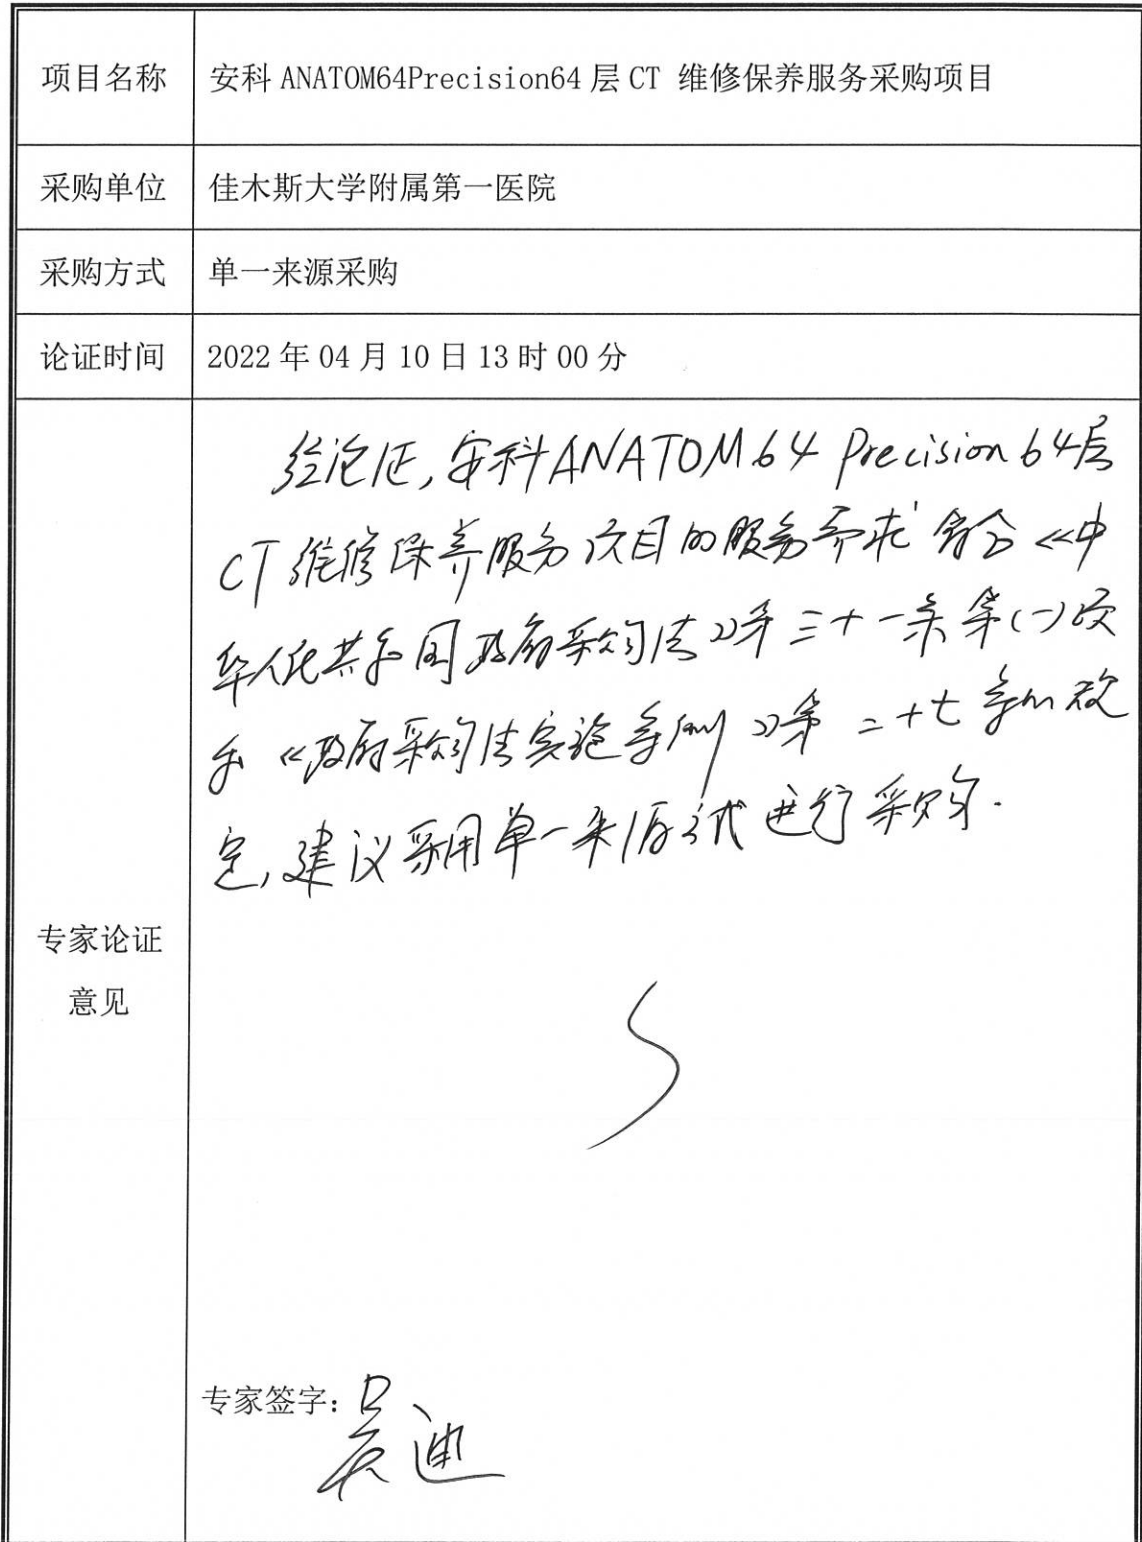 项目名称 安科 ANATOM64Precision64 层 CT 维修保养服务采购项目
采购单位 佳木斯大学附属第一医院
采购方式 单一来源采购
论证时间 2022 年 04 月 10 日 13 时 00 分
专家论证
意见
经论证,安科ANATOM64 Precision 64层
CT维修保养服务项目的服务需求符合《中
华人民共和国政府采购法》第三十一条第(一)项
和《政府采购法实施条例》第二十七条的规
定,建议采用单一来源方式进行采购.
专家签字:吴迪